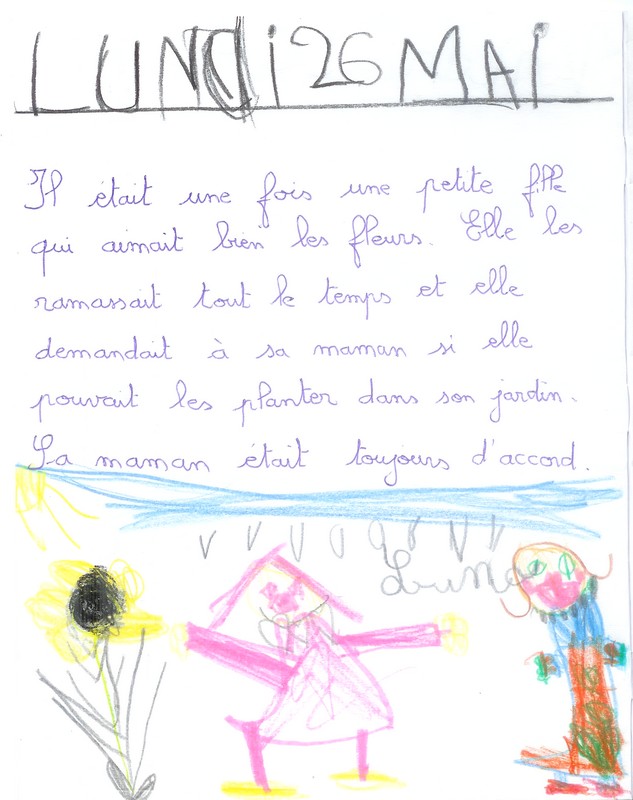 LUNDi 26 MAI
Il était une fois une petite fille
qui aimait bien les fleurs. Elle les
ramassait tout le temps et elle
demandait à sa maman si elle
pouvait les planter dans son jardin.
Sa maman était toujours d'accord.